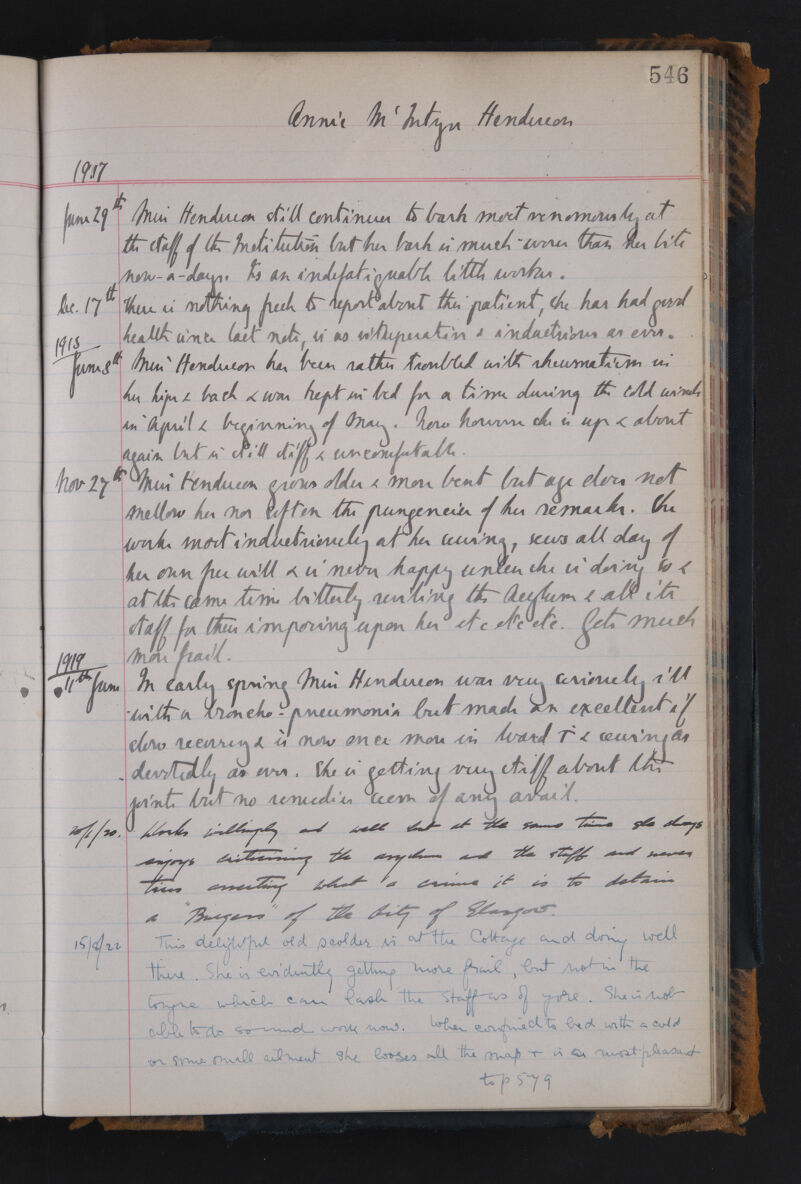 546
Annie McIntyre Henderson
1917
June 29th Miss Henderson still continues to bark most venomously at
the staff of the Institution but her bark is much worse than her bite
now-a-days. Is an indefatiguable little worker.
Dec. 17th There is nothing fresh to report about this patient, she has had good
health since last note, is as vituperative & industrious as ever.
1918
June 8th Miss Henderson has been rather troubled with rheumatism in
her hips & back & was kept in bed for a time during the cold winds
in April & beginning of May. Now however she is up & about
again but is still stiff & uncomfortable.
Nov 27th Miss Henderson grows older & more bent but age does not
mellow her nor soften the pungencies of her remarks. She
works most industriously at her sewing, sews all day of
her own free will & is never happy unless she is doing so &
at the same time bitterly reviling the Asylum & all its
staff for their imposing upon her etc etc etc. Gets much
more frail.
1919
11th June In early spring Miss Henderson was very seriously ill
with a broncho-pneumonia but made an excellent if
slow recovery & is now once more in Ward I & sewing as
devotedly as ever. She is getting very stiff about the
joints but no remedies seem of any avail.
Works willingly and well but at the same time she always
enjoys criticising the asylum and the staff and never
tires asserting what a crime it is to detain
a "Burgess" of the City of Glasgow.
15/8/22 This delightful old scolder is at the Cottage and doing well
there. She is evidently getting more frail, but not in the
tongue which can lash the staff as of yore. She is not
able to do so much work now. When confined to bed with a cold
or some small ailment she looses all the snap & is most pleasant
to p 579